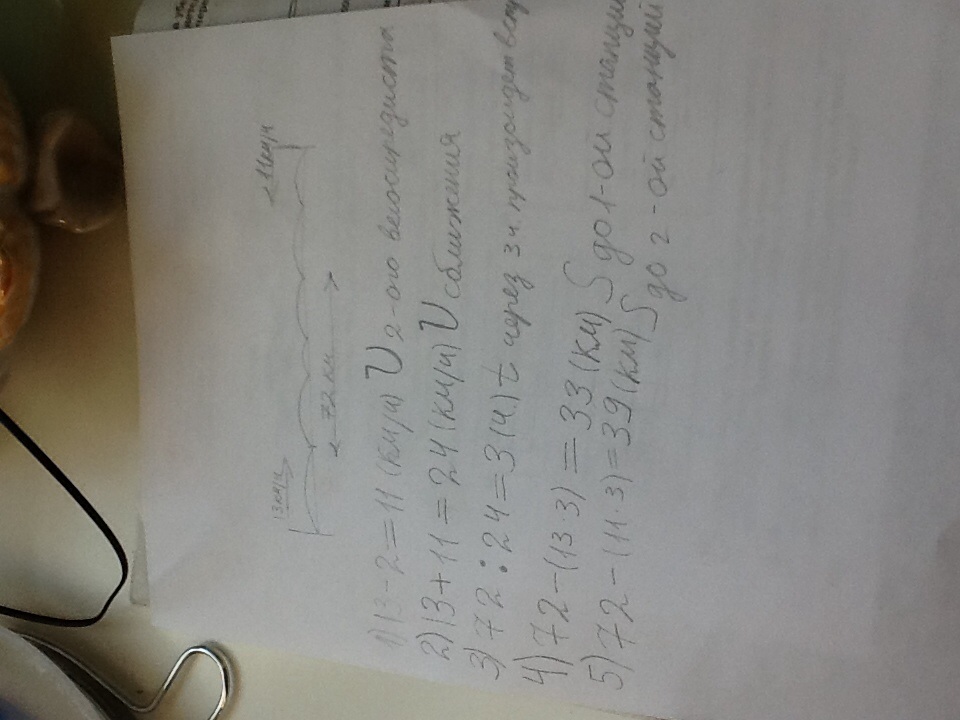 13км/ч
11км/ч
72 км
1) 13 - 2 = 11 (км/ч) V 2-ого велосипедиста
2) 13 + 11 = 24 (км/ч) V сближения
3) 72 : 24 = 3 (ч.) t через 3 ч. произойдет
4) 72 - (13·3) = 33 (км) S до 1-ой станции
5) 72 - (11·3) = 39 (км) S до 2-ой станций